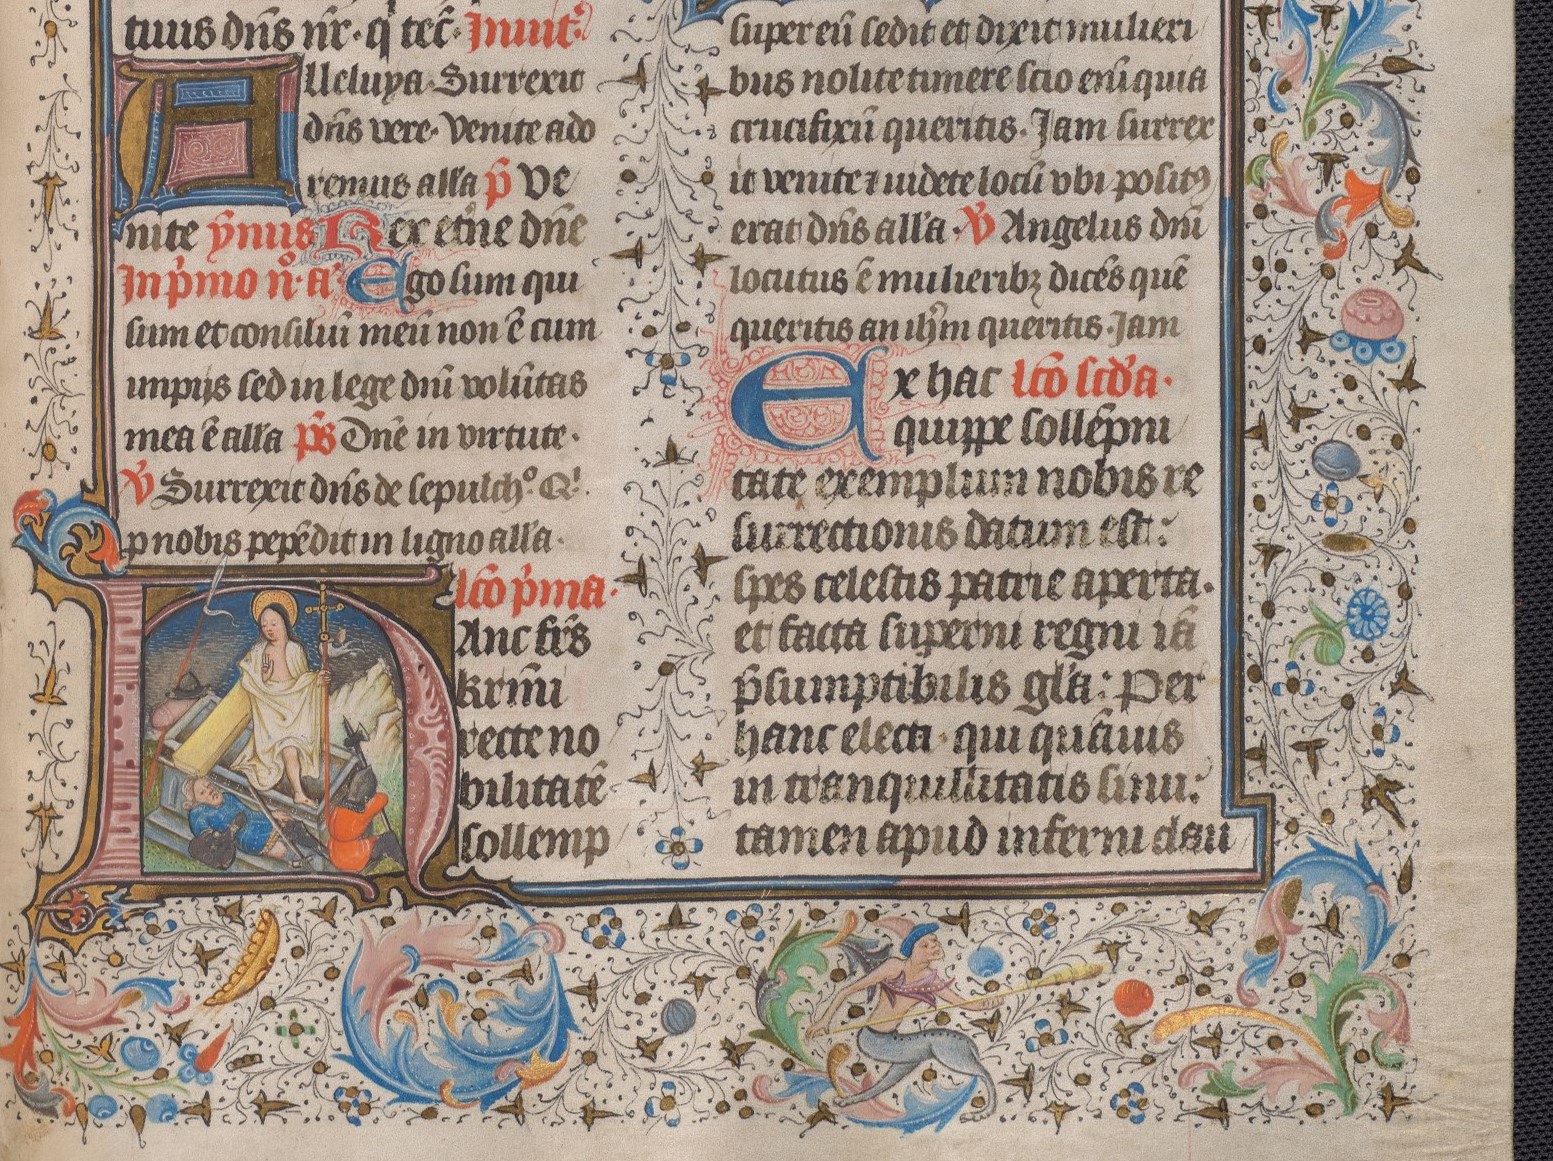 tuus dn̄s nr̄· q̇ tec̄· Inuit̄·
Alleluya· Surrexit
dn̄s vere· Venite ado
remus alła p̄ Ve
nite ẏnus Rex et̄ne dn̄e
In p̄mo n̊· a͛ Ego sum qui
sum et consiliū meū non ē cum
impijs sed in lege dn̄i volūtas
mea ē alła p̄s Dn̄e in virtute·
v̄ Surrexit dn̄s de sepulch̊· Qi
p nobis pepēdit in ligno alła·
Lc̄o p̄ma·
HAnc fr̄s
kr̄mi
recte no
bilitatē
sollemp
super eū sedit et dixit mulieri
bus nolite timere scio enī quia
crucifixū queritis· Jam surrex
it venite ⁊ uidete locū vbi positꝰ
erat dn̄s alła· v̄ Angelus dn̄i
locutus ē mulieribꝫ dicēs quē
queritis an ih̄m queritis· Jam
Ex hac Lc̄o sc̄da·
quippe sollēpni
tate exemplum nobis re
surrectionis datum est:
spes celestis patrie aperta·
et facta superni regni iā
p̄sumptibilis gła: Per
hanc electi· qui quāuis
in tranquillitatis sinu:
tamen apud inferni clau